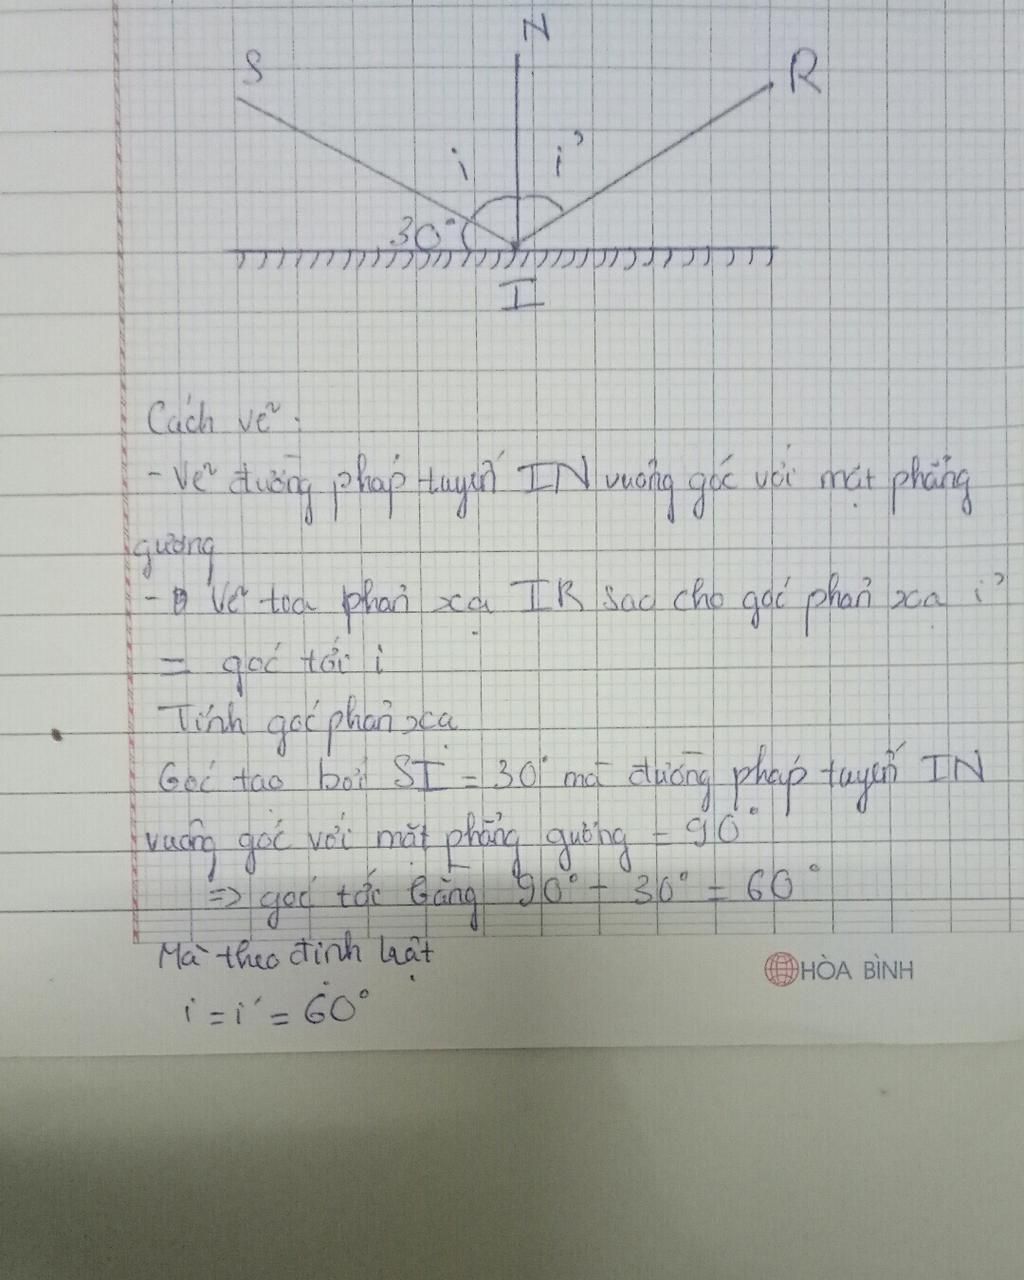 S N R
i i'
30°
I
Cách vẽ:
- Vẽ đường pháp tuyến IN vuông góc với mặt phẳng
gương
- Vẽ toa phản xạ IR sao cho góc phản xạ i'
= góc tới i
Tính góc phản xạ
Góc tạo bởi SI = 30° mà đường pháp tuyến IN
vuông góc với mặt phẳng gương = 90°
=> góc tới bằng 90° - 30° = 60°
Mà theo định luật
HÒA BÌNH
i = i' = 60°